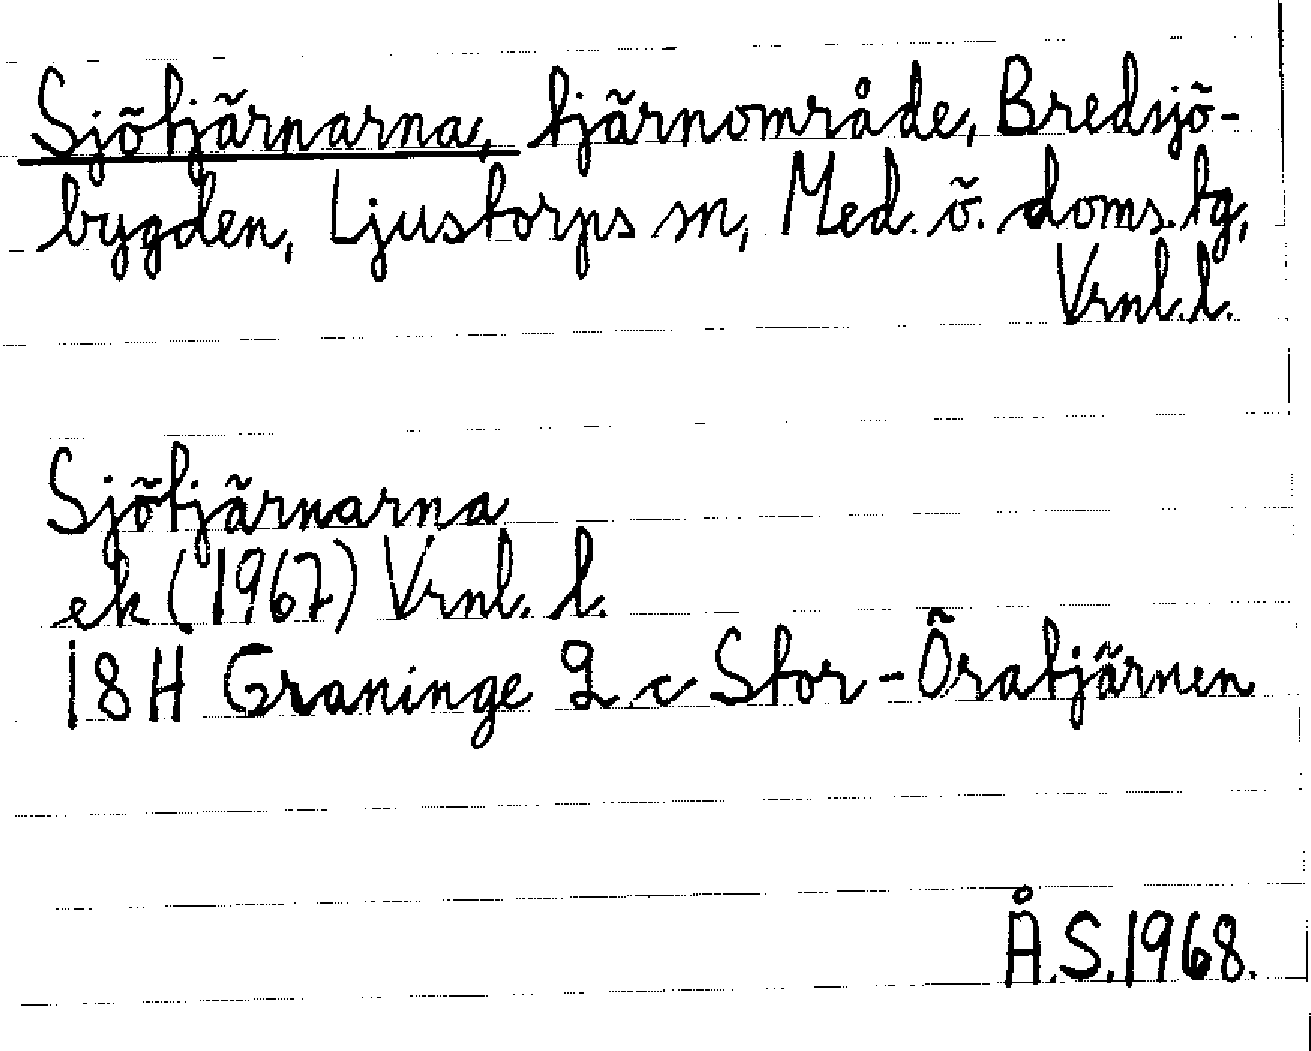 Sjötjärnarna, tjärnområde, Bredsjö-
bygden, Ljustorps sn, Med. ö. doms. tg,
Vrnl.l.
Sjötjärnarna
ek (1967) Vrnl. l.
18H Graninge 2 c Stor-Öratjärnen
Å.S.1968.